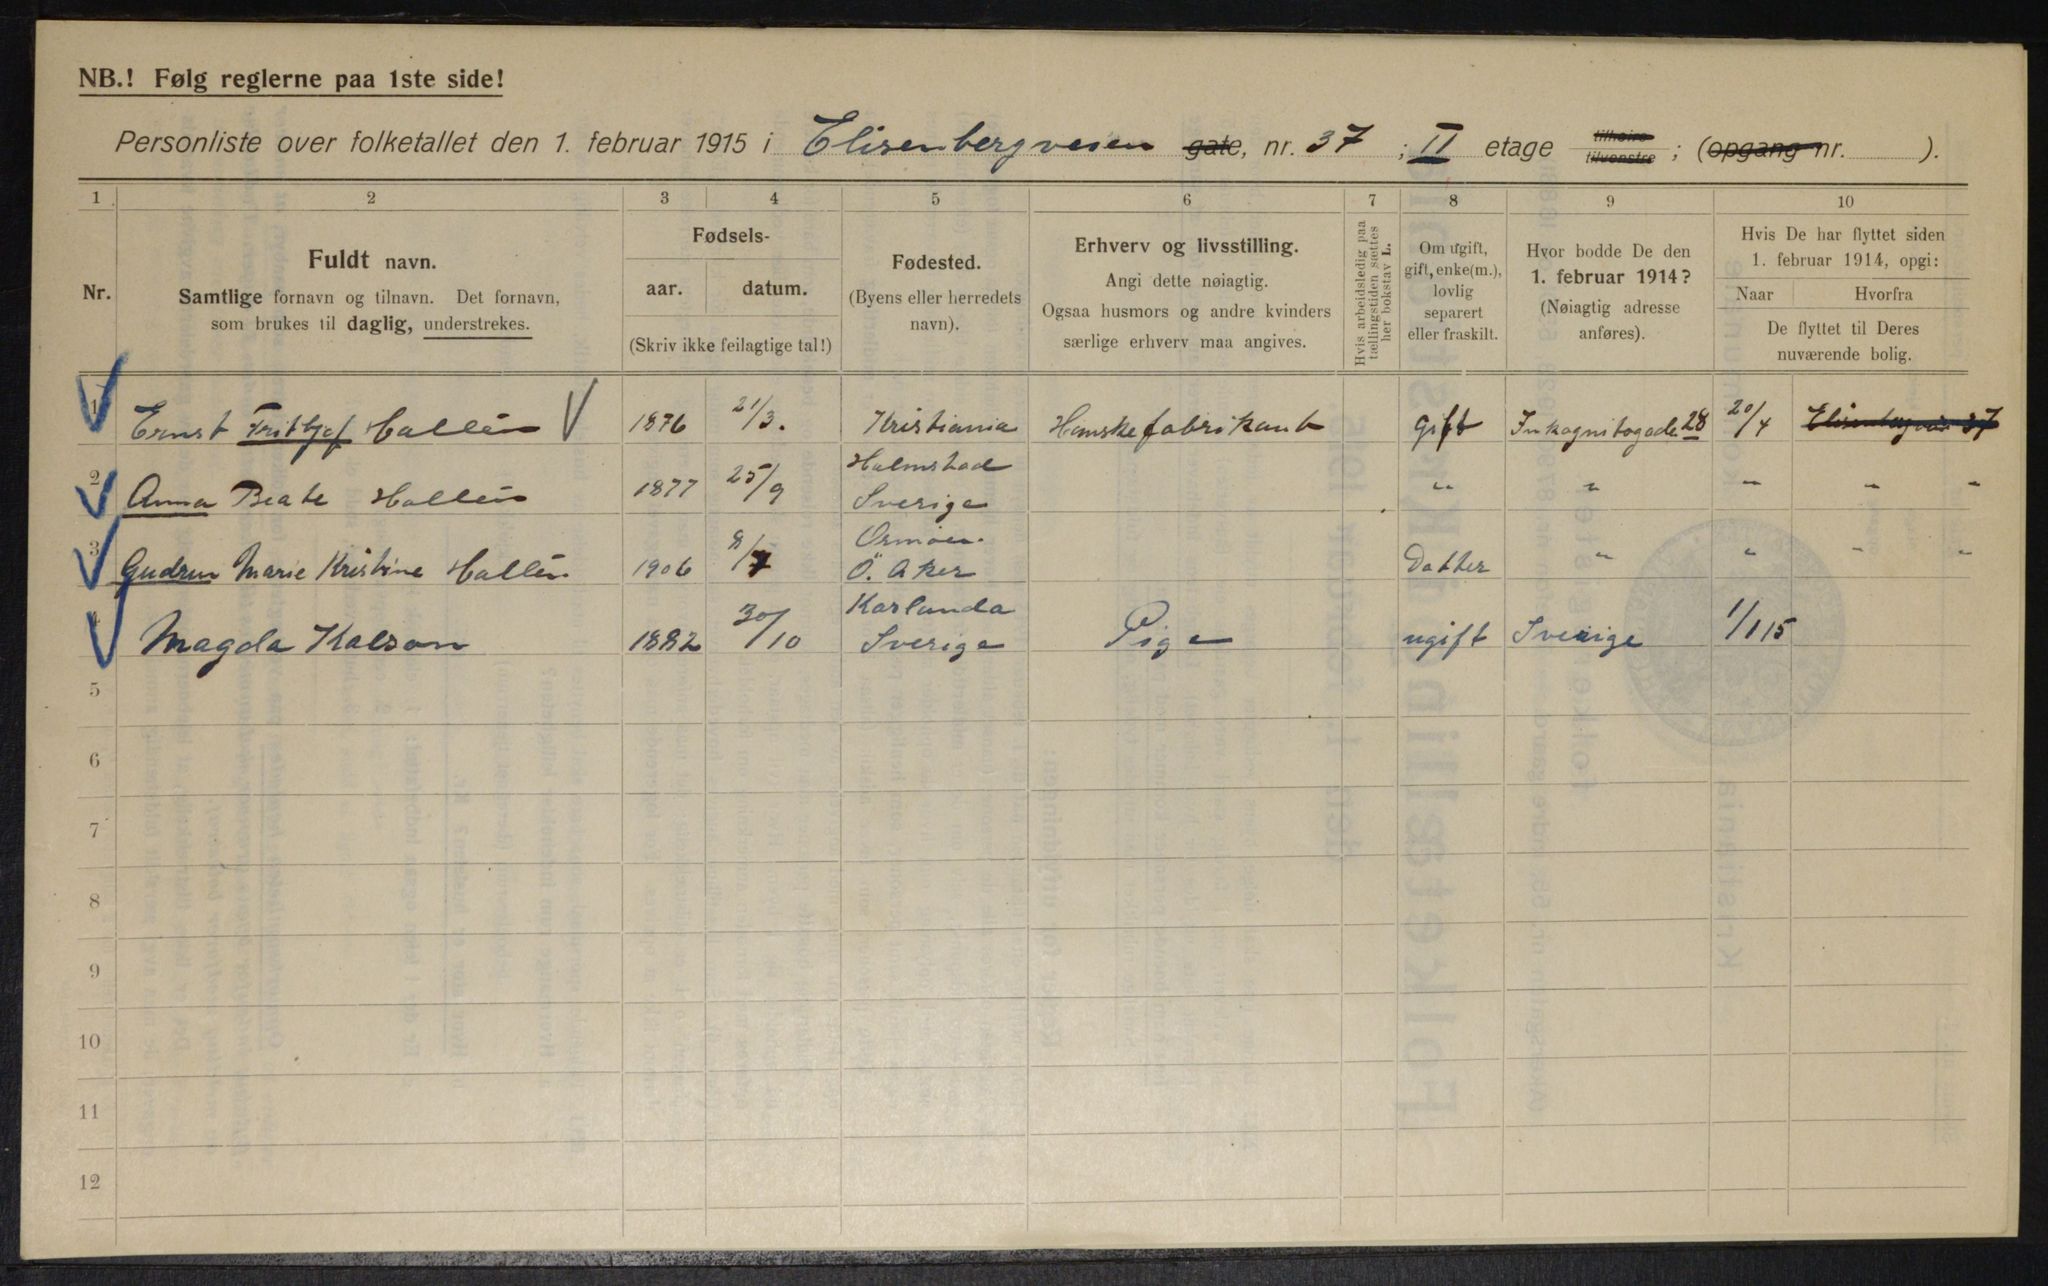 NB.! Følg reglerne paa 1ste side!
Personliste over folketallet den 1. februar 1915 i Elisenbergveien gate, nr. 37; II etage tilhøire tilvenstre; (opgang nr. ).
1 2 3 4 5 6 7 8 9 10
Nr.
Fuldt navn.
Samtlige fornavn og tilnavn. Det fornavn,
som brukes til daglig, understrekes.
Fødsels-
aar. datum.
(Skriv ikke feilagtige tal!)
Fødested.
(Byens eller herredets
navn).
Erhverv og livsstilling.
Angi dette nøiagtig.
Ogsaa husmors og andre kvinders
særlige erhverv maa angives.
Hvis arbeidsledig paa
tællingstiden sættes
her bokstav L.
Om ugift,
gift, enke(m.),
lovlig
separert
eller fraskilt.
Hvor bodde De den
1. februar 1914?
(Nøiagtig adresse
anføres).
Hvis De har flyttet siden
1. februar 1914, opgi:
Naar Hvorfra
De flyttet til Deres
nuværende bolig.
1 Ernst Frithjof Hallén 1876 21/3. Kristiania Hanskefabrikant Gift Inkognitogade 28 20/4 Elisenbergvei 37
2 Anna Beate Hallén 1877 25/9 Halmstad Sverige " " " " "
3 Gudrun Marie Kristine Hallén 1906 8/7 Ormøen Ö. Aker Datter " " " "
4 Magda Kalson 1882 30/10 Karlanda Sverige Pige ugift Sverige 1/1 15
5
6
7
8
9
10
11
12